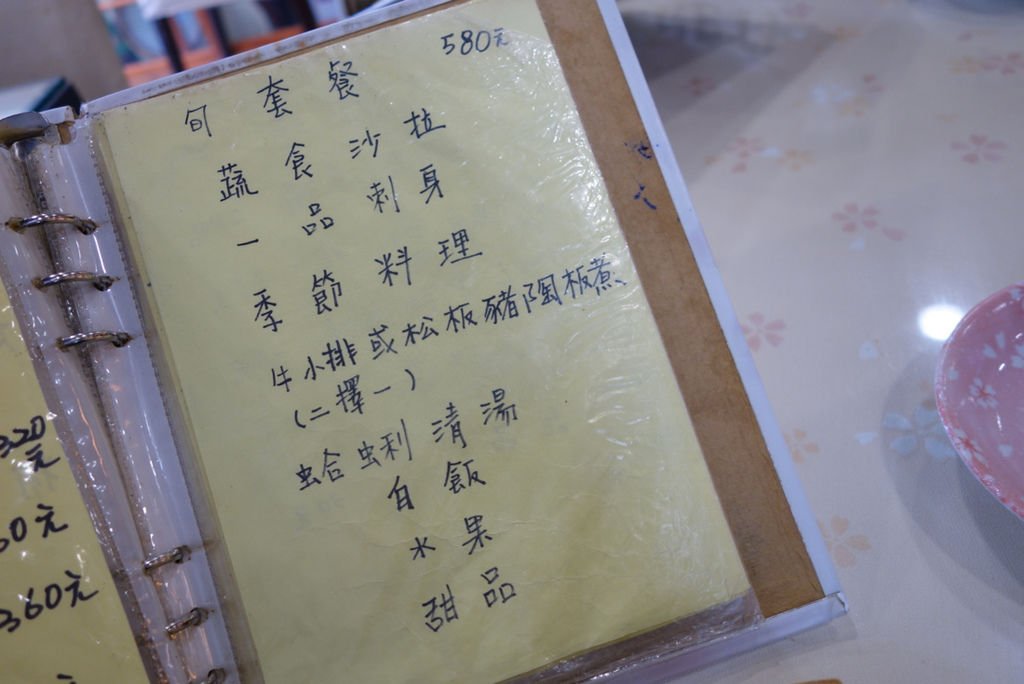 580元
旬套餐
蔬食沙拉
一品刺身
季節料理
牛小排或松板豬陶板煮
(二擇一)
蛤蜊清湯
白飯
水果
甜品
320元
60元
360元